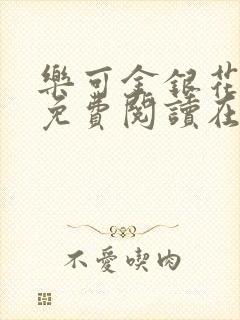 樂可金銀花
免費閱讀在
不愛喫肉